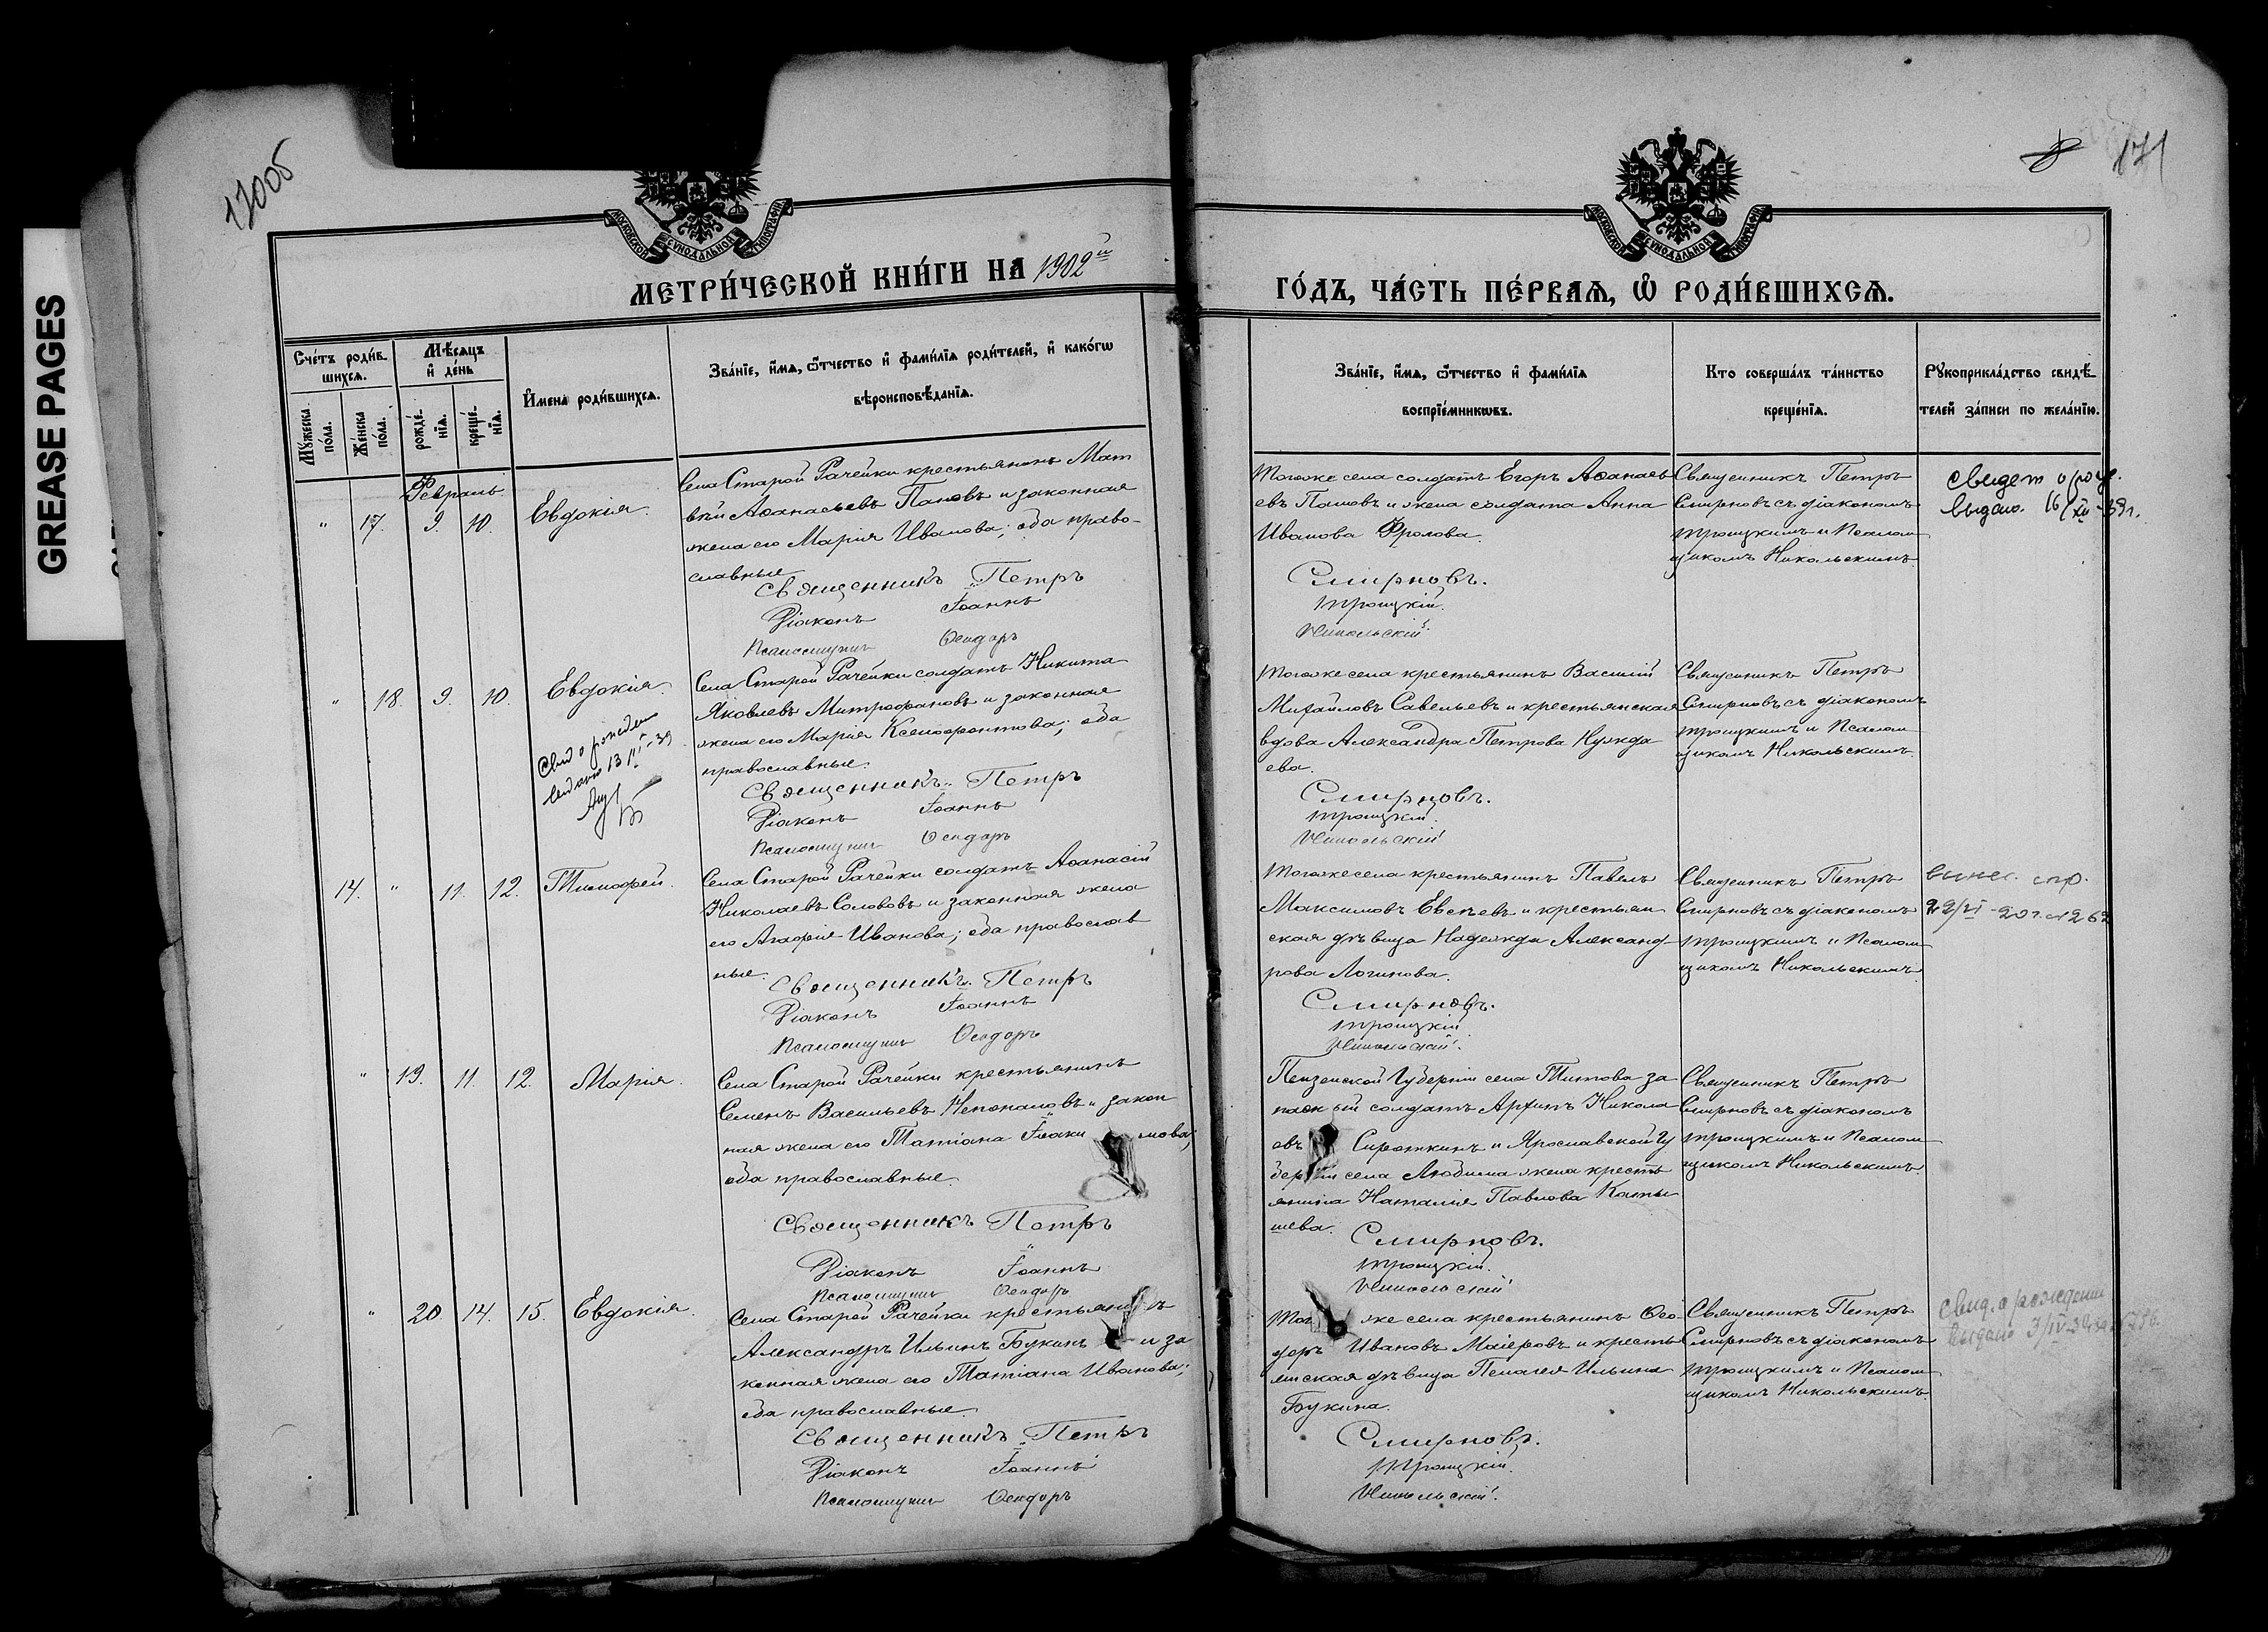 GREASE PAGES
170об
171
МЕТРИ́ЧЕСКОЙ КНИ́ГИ НА 1902й
ГО́ДЪ, ЧА́СТЬ ПЕ́РВАѦ, Ѡ РОДИ́ВШИХСѦ.
МОСКОВСКОЙ СѴНОДАЛЬНОЙ ТИПОГРАФІИ
МОСКОВСКОЙ СѴНОДАЛЬНОЙ ТИПОГРАФІИ
Сче́тъ роди́в-
шихсѧ.
Мꙋ́жеска по́ла.
Же́нска по́ла.
Мѣ́сѧцъ и҆ де́нь
рожде́-нїѧ.
креще́-нїѧ.
И҆́мена роди́вшихсѧ.
Зва́нїе, и҆́мѧ, ѻ҆́тчество и҆ фами́лїѧ роди́телей, и҆ како́гѡ
вѣроисповѣ́данїѧ.
Зва́нїе, и҆́мѧ, ѻ҆́тчество и҆ фами́лїѧ
воспрїе́мникѡвъ.
Кто соверша́лъ та́инство
креще́нїѧ.
Рꙋкоприкла́дство свидѣ́-
телей за́писи по жела́нїю.
Февраль
" 17. 9. 10. Евдокія.
Села Старой Рачейки крестьянинъ Мат
вѣй Аѳанасьевъ Пановъ и законная
жена его Марія Иванова; оба право-
славные
Священникъ Петръ
Діаконъ Іоаннъ
Псаломщикъ Ѳеодоръ
Тогоже села солдатъ Егоръ Аѳанась
евъ Пановъ и жена солдата Анна
Иванова Фролова.
Смирновъ.
Троицкій.
Никольскій.
Священникъ Петръ
Смирновъ съ діакономъ
Троицкимъ и Псалом
щикомъ Никольскимъ
свидет о рожд.
выдано. 16/XII-39г.
" 18. 9. 10. Евдокія.
Свид о рожден
выдано 13
Села Старой Рачейки солдатъ Никита
Яковлевъ Митрофановъ и законная
жена его Марія Ксенофонтова; оба
православные.
Священникъ Петръ
Діаконъ Іоаннъ
Псаломщикъ Ѳеодоръ
Тогоже села крестьянинъ Василій
Михайловъ Савельевъ и крестьянская
вдова Александра Петрова Нужда
ева.
Смирновъ.
Троицкій.
Никольскій
Священникъ Петръ
Смирновъ съ діакономъ
Троицкимъ и Псалом
щикомъ Никольскимъ.
14. " 11. 12. Тимофей.
Села Старой Рачейки солдатъ Аѳанасій
Николаевъ Солововъ и законная жена
его Агафія Иванова; оба православ
ные.
Священникъ Петръ
Діаконъ Іоаннъ
Псаломщикъ Ѳеодоръ
Тогоже села крестьянинъ Павелъ
Максимовъ Евсѣевъ и крестьян
ская дѣвица Надежда Александ-
рова Логинова.
Смирновъ.
Троицкій
Никольскій.
Священникъ Петръ
Смирновъ съ діакономъ
Троицкимъ и Псалом
щикомъ Никольскимъ
" 19. 11. 12. Марія.
Села Старой Рачейки крестьянинъ
Семенъ Васильевъ Непокаловъ и закон
ная жена его Татіана Іоаки мова;
оба православные.
Священникъ Петръ
Діаконъ Іоаннъ
Псаломщикъ Ѳеодоръ
Пензенской Губерніи села Титова за
пасный солдатъ Архипъ Никола
евъ Сироткинъ и Ярославской Гу
берніи села Любима жена кресть
янина Наталія Павлова Каты
шева.
Смирновъ.
Троицкій.
Никольскій
Священникъ Петръ
Смирновъ съ діакономъ
Троицкимъ и Псалом
щикомъ Никольскимъ.
" 20. 14. 15. Евдокія.
Села Старой Рачейки крестьянинъ
Александръ Ильинъ Букинъ и за
конная жена его Татіана Иванова;
оба православные.
Священникъ Петръ
Діаконъ Іоаннъ
Псаломщикъ Ѳеодоръ
Тогоже села крестьянинъ Ѳео
доръ Ивановъ Маіеровъ и кресть
янская дѣвица Пелагея Ильина
Букина.
Смирновъ.
Троицкій.
Никольскій.
Священникъ Петръ
Смирновъ съ діакономъ
Троицкимъ и Псалом
щикомъ Никольскимъ.
свид. о рождении
выдано